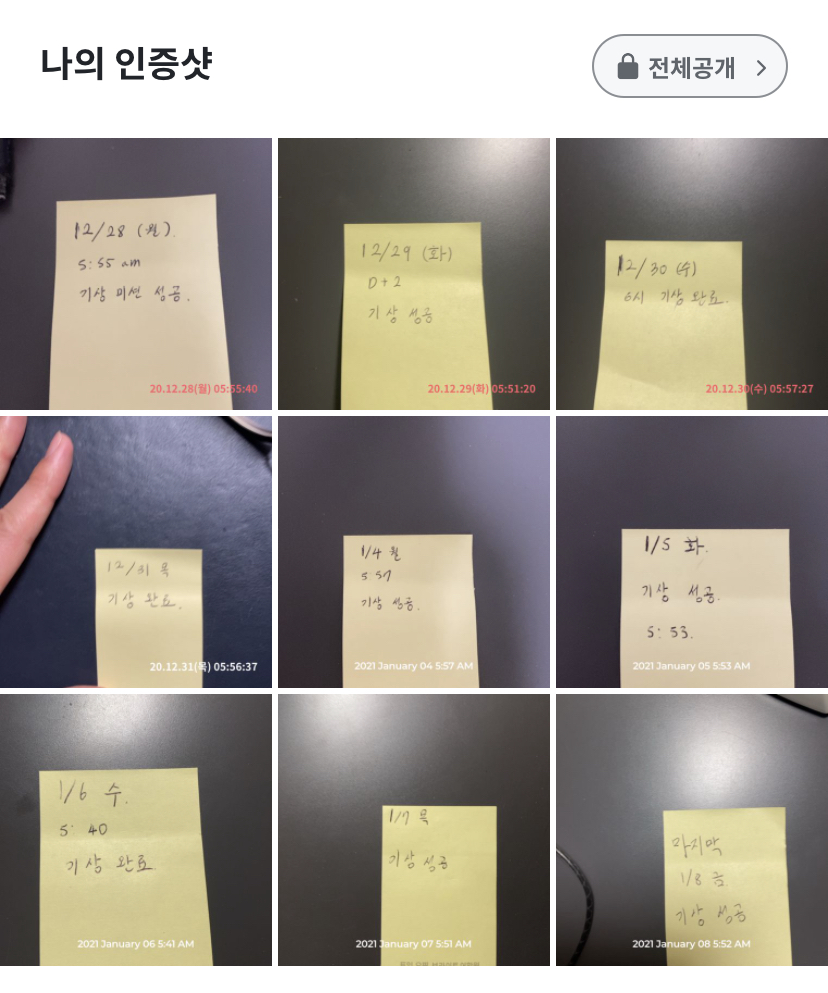 나의 인증샷
전체공개
12/28 (월).
5:55 am
기상 미션 성공.
20.12.28(월) 05:55:40
12/29 (화)
D+2
기상 성공
20.12.29(화) 05:51:20
12/30 (수)
6시 기상 완료.
20.12.30(수) 05:57:27
12/31 목
기상 완료.
20.12.31(목) 05:56:37
1/4 월
5:57
기상 성공.
2021 January 04 5:57 AM
1/5 화.
기상 성공.
5:53.
2021 January 05 5:53 AM
1/6 수.
5:40
기상 완료
2021 January 06 5:41 AM
1/7 목
기상 성공
2021 January 07 5:51 AM
마지막
1/8 금
기상 성공
2021 January 08 5:52 AM